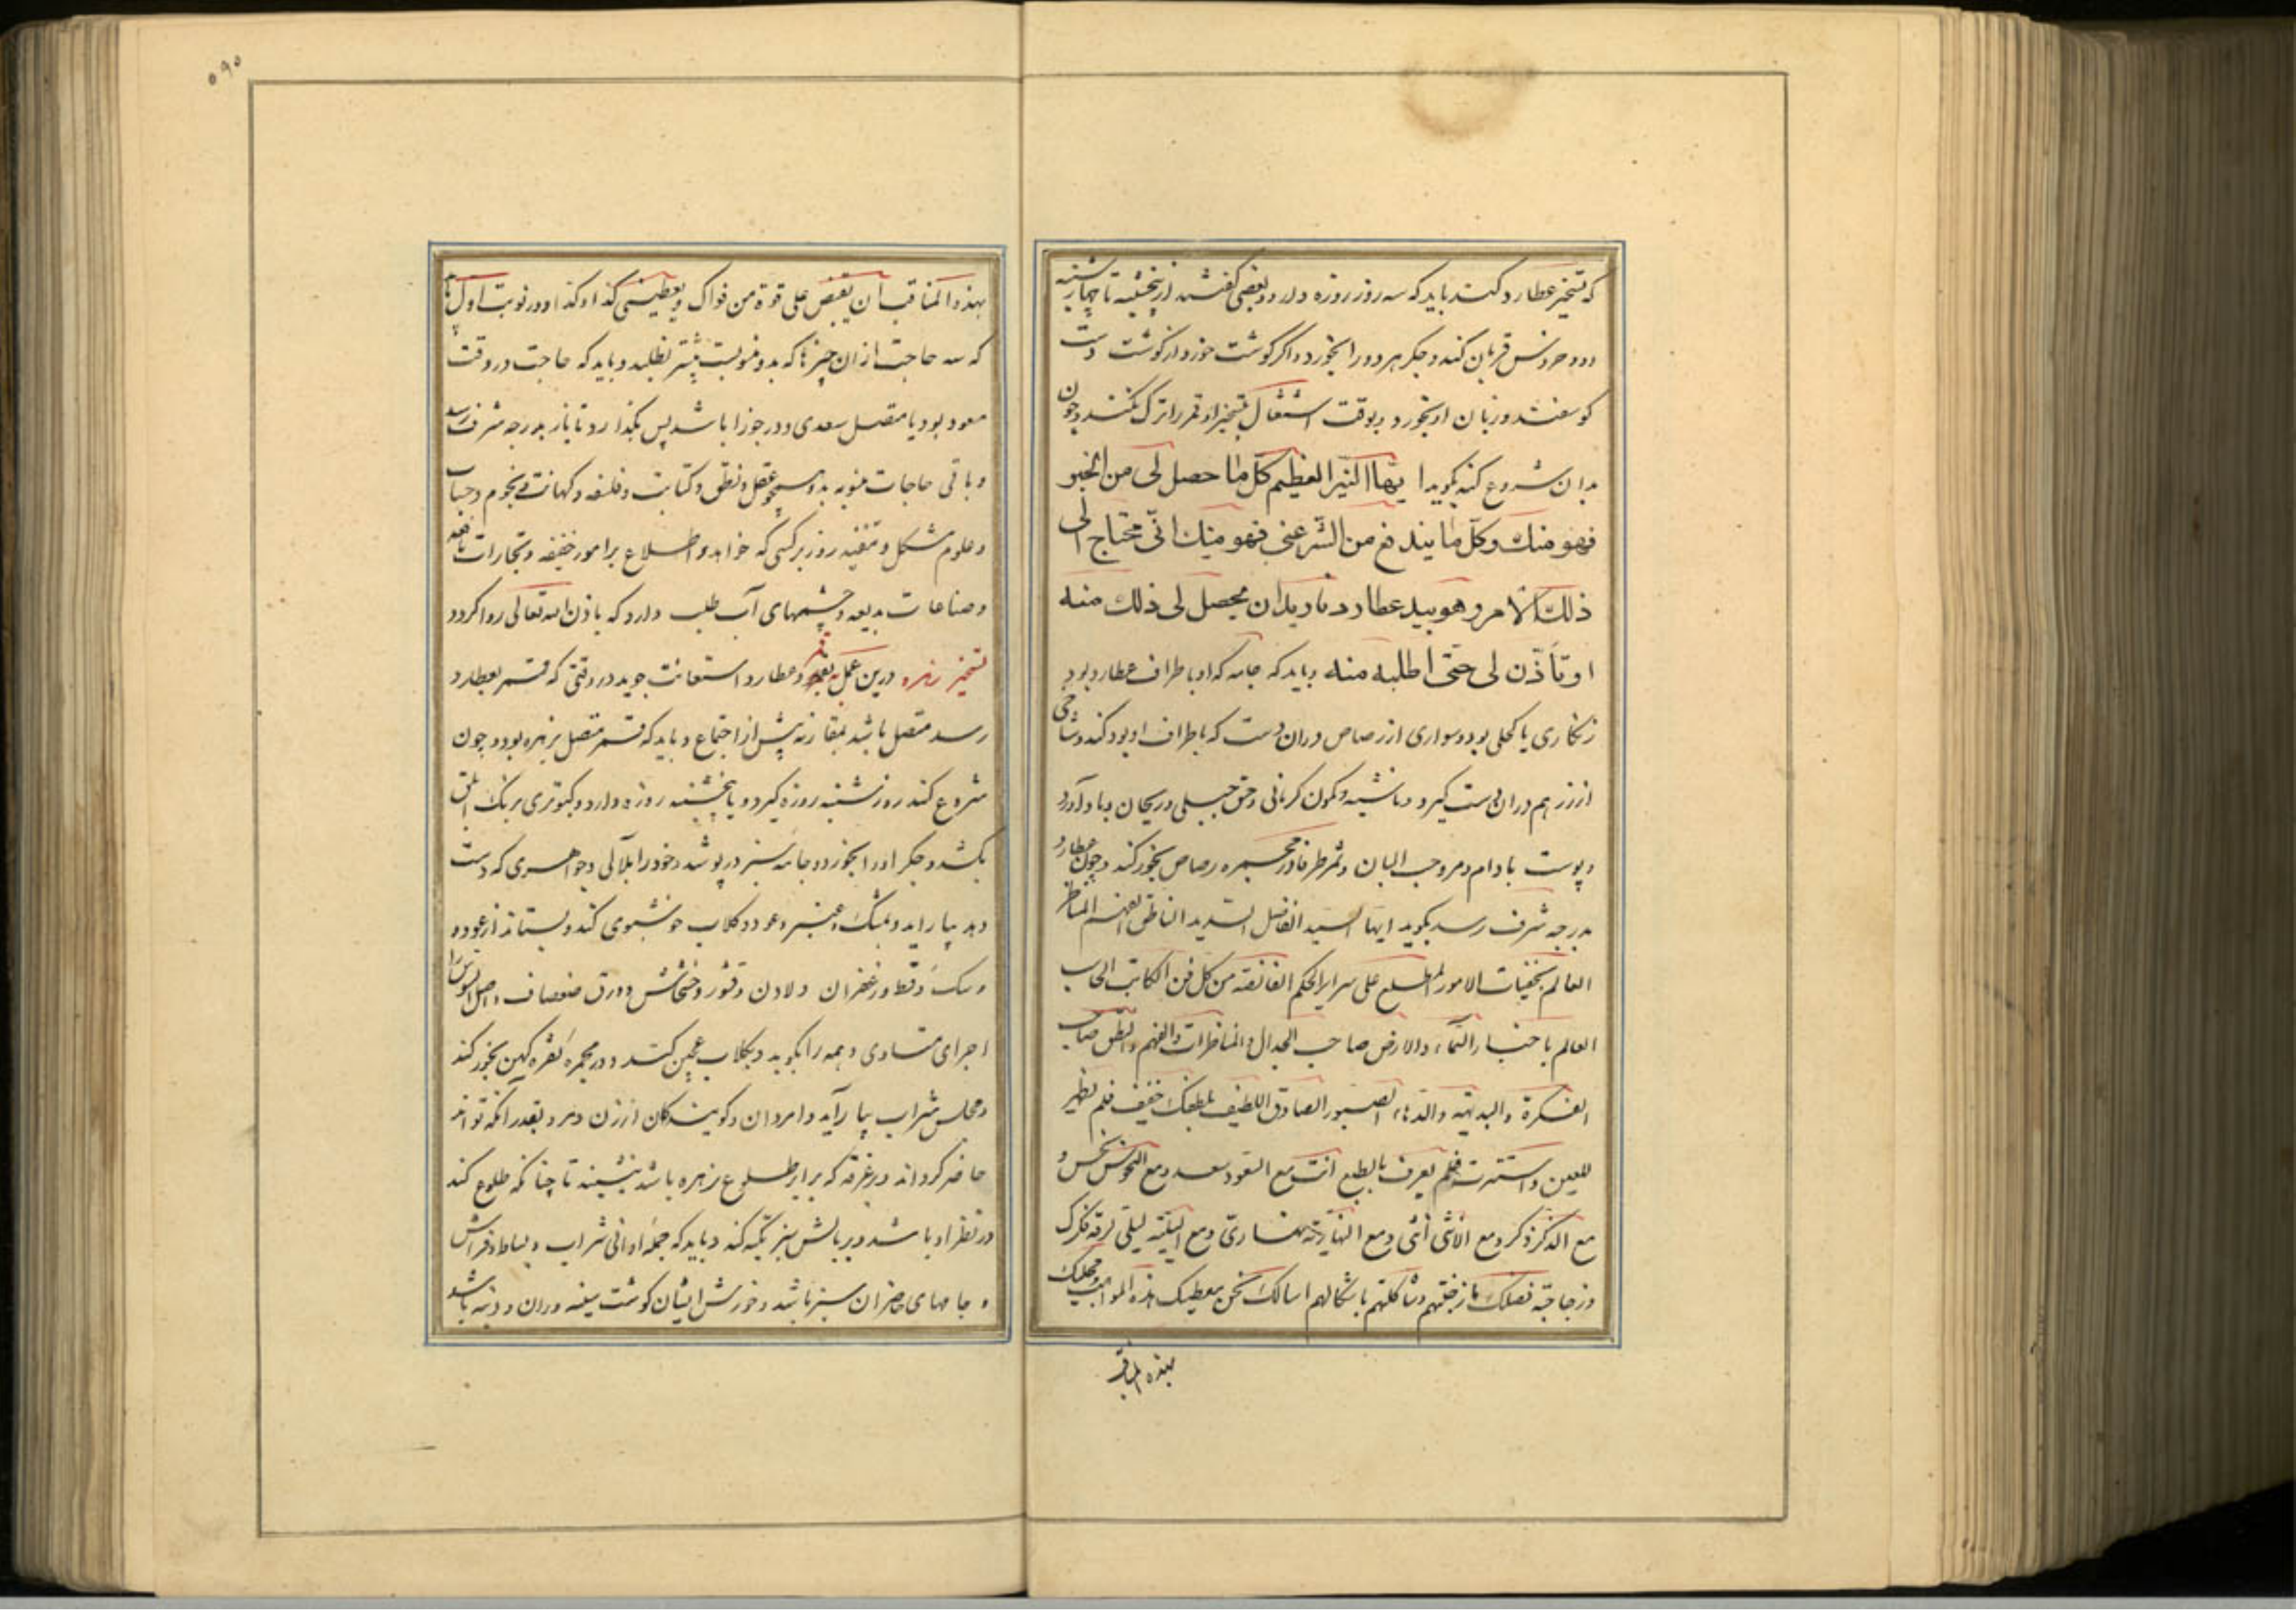 که تسخیر عطارد کند باید که سه روز روزه دارد و بعضی گفته‌اند از پنجشنبه تا چهارشنبه
و دو خروس قربان کند و جگر هر دو را بخورد و اگر گوشت خورد از گوشت دست
گوسفند و زبان او بخورد و بوقت اشتغال بتسخیر او قمر را ترک نکند و چون
بدان شروع کند بگوید ایهاا النیر العظیم کل ما حصل لی من الخیر
فهو منك و کل ما یندفع من الشر عنی فهو منك انی محتاج الی
ذلك الامر و هو بید عطارد بان یحصل لی ذلك منه
او تأذن لی حتی اطلبه منه و باید که جامه که او باطراف عطارد بود
زنکاری یا کحلی بود و سواری از رصاص در آن دست که باطراف او بود کند و شاخی
از زر هم در آن دست گیرد و کمون کرمانی و حق جبلی و ریحان
و پوست بادام و مر و حب البان و ثمر طرفا در مجمره رصاص بخور کند و چون عطارد
بدرجه شرف رسد بگوید ایها السید الفاضل السدید الناطق الفهم المناظر
العالم بخفیات الامور المطلع علی سرایر الحکم الفائقه من کل فن الکاتب الحاسب
العالم باخبار السماء و الارض صاحب الجدال و المناظرات و الفهم و النطق صاحب
الفکرة و البدیهه و الدهاء الصبور الصادق اللطیف بلطفک خفیف فلم تظهر
للعین و استترت فلم یعرف بالطبع انت مع السعود سعد و مع النحوس نحس و
مع الذکر ذکر و مع الانثی انثی و مع النهاریة نهاری و مع اللیلیة لیلی
اسالک بحق معطیک هذه المواهب
بهذه المناقب
۵۹۰
بهذه المناقب ان تفیض علی قوة من قواک و یعطینی کذا و کذا و در نوبت اول
که سه حاجت از آن چیزها که بدو منسوبست بیشتر نطلبد و باید که حاجت در وقت
مسعود بود یا متصل بسعدی و در جوزا باشد پس بگذارد تا باز بدرجه شرف رسد
و باقی حاجات منسوبه بدو همچو عقل و نطق و کتابت و فلسفه و کهانت و نجوم و حساب
و علوم مشکل و تنفیذ روز بر کسی که خواهد و اطلاع بر امور خفیفه و تجارات
و صناعات بدیعه و چشمهای آب طلب دارد که باذن الله تعالی روا گردد
تسخیر زهره درین عمل بقمر و عطارد استعانت جوید در وقتی که قمر بعطارد
رسد متصل باشد بمقارنه پیش از اجتماع و باید که قمر متصل بزهره بود و چون
شروع کند روز شنبه روزه گیرد و یا پنجشنبه روزه دارد و کبوتری برنک ابلق
بکشد و جگر او را بخورد و جامه سبز در پوشد و خود را بلآلی و جواهری که دست
دهد بیاراید و بمشک و عنبر و عود و گلاب خوشبوی کند و بستاند از عود
و سک و قسط و زعفران و لادن و قشور خشخاش و ورق صفصاف و اصل السوسن
اجزای متساوی و همه را بکوبد و بگلاب عجین کند و در مجمره نقره کهن بخور کند
و مجلس شراب بیاراید و امردان و گویندگان از زن و مرد بقدر آنکه تواند
حاضر گرداند و در غرفه که برابر طلوع زهره باشد بنشیند تا چنانکه طلوع کند
در نظر او باشد و بر بالش سبز تکیه کند و باید که جمله اوانی شراب و بساط و فراش
و جامهای حاضران سبز باشد و خورش ایشان گوشت سینه و ران و دنبه باشد